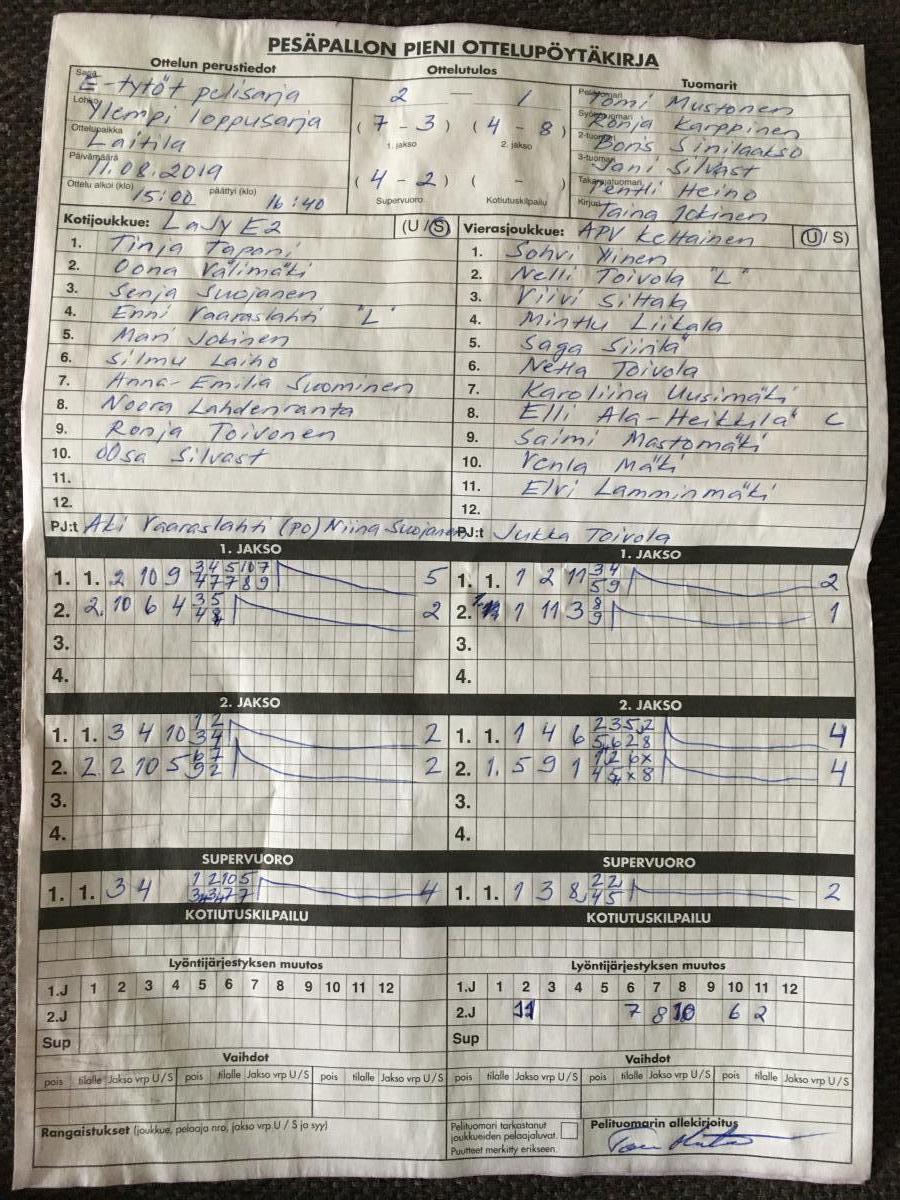 PESÄPALLON PIENI OTTELUPÖYTÄKIRJA
Ottelun perustiedot Ottelutulos Tuomarit
Sarja E-tytöt pelisarja 2 — 1 Pelituomari Tomi Mustonen
Lohko Ylempi loppusarja ( 7 - 3 ) ( 4 - 8 ) Syöttötuomari Ronja Karppinen
Ottelupaikka Laitila 1. jakso 2. jakso 2-tuomari Boris Sinilaakso
Päivämäärä 11.08.2019 3-tuomari Jani Silvast
( 4 - 2 ) ( - ) Takarajatuomari Pentti Heino
Ottelu alkoi (klo) 15:00 päättyi (klo) 16:40 Supervuoro Kotiutuskilpailu Kirjuri Taina Jokinen
Kotijoukkue: LaJy E2 (U / S) Vierasjoukkue: APV Keltainen (U / S)
1. Tinja Tapani 1. Sohvi Ylinen
2. Oona Välimäki 2. Nelli Toivola "L"
3. Senja Suojanen 3. Viivi Siltala
4. Enni Vaaraslahti "L" 4. Minttu Liikala
5. Mari Jokinen 5. Saga Siirilä
6. Silmu Laiho 6. Netta Toivola
7. Anna-Emilia Suominen 7. Karoliina Uusimäki
8. Noora Lahdenranta 8. Elli Ala-Heikkilä C
9. Ronja Toivonen 9. Saimi Mastomäki
10. Oosa Silvast 10. Venla Mäki
11. 11. Elvi Lamminmäki
12. 12.
PJ:t Aki Vaaraslahti (PO) Niina Suojanen PJ:t Jukka Toivola
1. JAKSO 1. JAKSO
1. 1. 2 10 9 3 4 5 10 7 5 1. 1. 1 2 11 3 4 2
4 7 7 8 9 5 9
2. 2. 10 6 4 3 5 2 2. 1 11 3 8 1
4 9
3. 3.
4. 4.
2. JAKSO 2. JAKSO
1. 1. 3 4 10 1 2 2 1. 1. 1 4 6 2 3 5 2 4
3 4 5 6 2 8
2. 2 2 10 5 6 7 2 2. 1. 5 9 1 1 2 6 x 4
9 2 4 5 x 8
3. 3.
4. 4.
SUPERVUORO SUPERVUORO
1. 1. 3 4 1 2 10 5 4 1. 1. 1 3 8 2 2 2
3 3 7 7 4 5
KOTIUTUSKILPAILU KOTIUTUSKILPAILU
Lyöntijärjestyksen muutos Lyöntijärjestyksen muutos
1.J 1 2 3 4 5 6 7 8 9 10 11 12 1.J 1 2 3 4 5 6 7 8 9 10 11 12
2.J 2.J 11 7 8 10 6 2
Sup Sup
Vaihdot Vaihdot
pois tilalle Jakso vrp U / S pois tilalle Jakso vrp U / S pois tilalle Jakso vrp U / S pois tilalle Jakso vrp U / S pois tilalle Jakso vrp U / S pois tilalle Jakso vrp U / S
Rangaistukset (joukkue, pelaaja nro, jakso vrp U / S ja syy) Pelituomari tarkastanut Pelituomarin allekirjoitus
joukkueiden pelaajaluvat.
Puutteet merkitty erikseen.